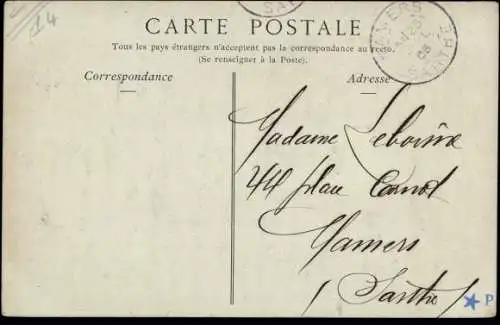 14
CARTE POSTALE
Tous les pays étrangers n'acceptent pas la correspondance au recto.
(Se renseigner à la Poste).
Correspondance
Adresse
MAMERS
08
SARTHE
Madame
44 place Carnot
Mamers
(Sarthe)
P